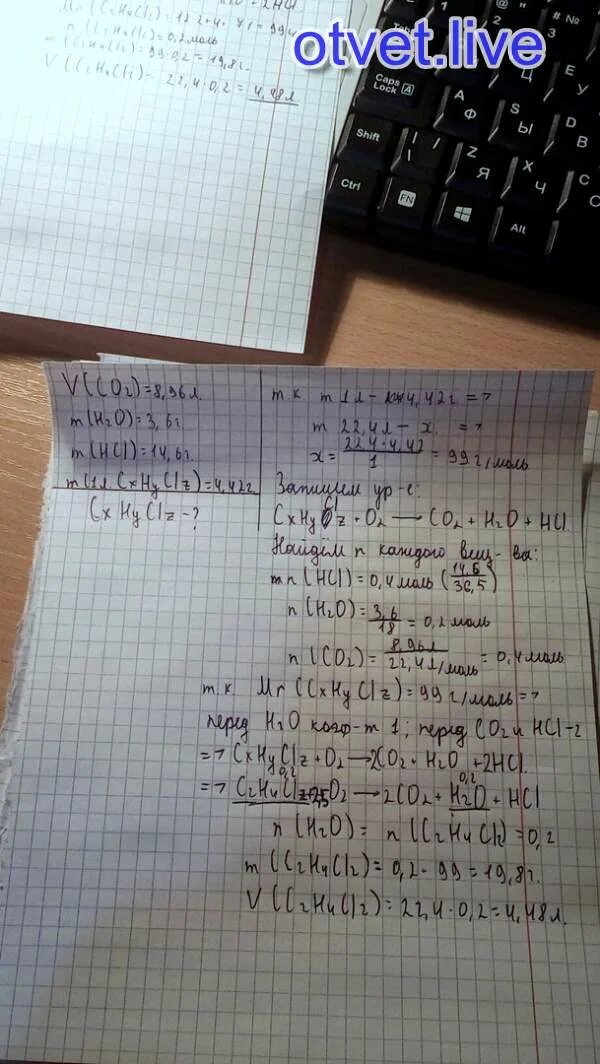 otvet.live
Mr (C2H4Cl2) = 12·2+4+71 = 99
n (C2H4Cl2) = 0,2 моль
m (C2H4Cl2) = 99·0,2 = 19,8 г.
V (C2H4Cl2) - 22,4·0,2 = 4,48 л
Caps Lock A
Shift
Ctrl
FN
Alt
№
3
2
Е
У
Ц
A
Ф
S
Ы
D
В
Z
Я
X
Ч
C
С
V(CO2)=8,96 л.
m(H2O)=3,6г.
m(HCl)=14,6г.
m(1л CxHyClz)=4,42г.
CxHyClz-?
т.к. m 1л - 4,42г. =>
m 22,4л - x. =>
x= 22,4·4,42 / 1 = 99 г/моль
Запишем ур-е:
CxHyClz + O2 → CO2 + H2O + HCl
Найдём n каждого вещ-ва:
n(HCl)=0,4 моль (14,6 / 36,5)
n(H2O)= 3,6 / 18 = 0,2 моль
n(CO2)= 8,96л / 22,4л/моль = 0,4 моль
т.к. Mr(CxHyClz)=99 г/моль =>
перед H2O коэф-т 1; перед CO2 и HCl-2
=> CxHyClz + O2 → 2CO2 + H2O + 2HCl.
0,2 0,2
=> C2H4Cl2+2,5O2 → 2CO2 + H2O + HCl
n(H2O)= n(C2H4Cl2)=0,2
m(C2H4Cl2)=0,2·99=19,8г.
V(C2H4Cl2)=22,4·0,2=4,48 л.